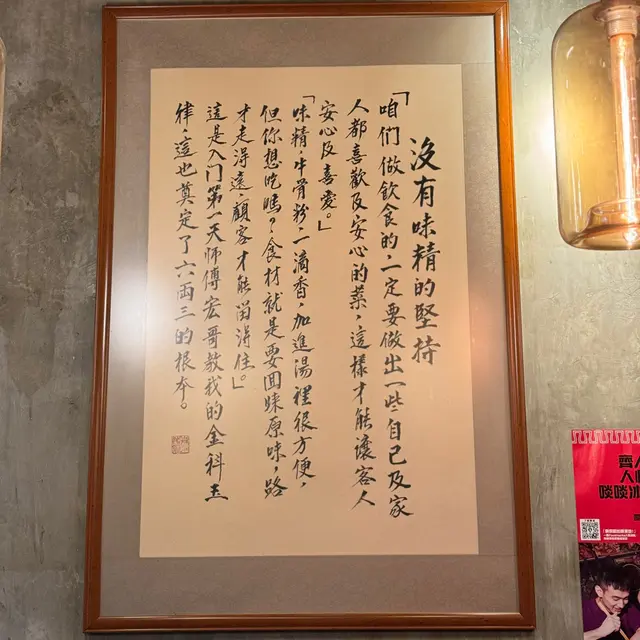 沒有味精的堅持
「咱们做飲食的，一定要做出一些自己及家
人都喜歡及安心的菜，這樣才能讓客人
安心及喜愛。」
「味精，牛骨粉，一滴香，加進湯裡很方便，
但你想吃嗎？食材就是要回味原味，路
才走得遠，顧客才能留得住。」
這是入门第一天师傅宏哥教我的金科玉
律，這也奠定了六両三的根本。
啖啖冰